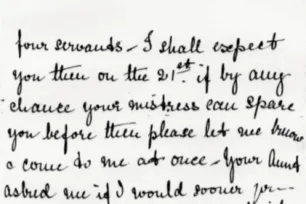 four servants – I shall expect
you then on the 21st. if by any
chance your mistress can spare
you before then please let me know
& come to me at once – Your Aunt
asked me if I would sooner